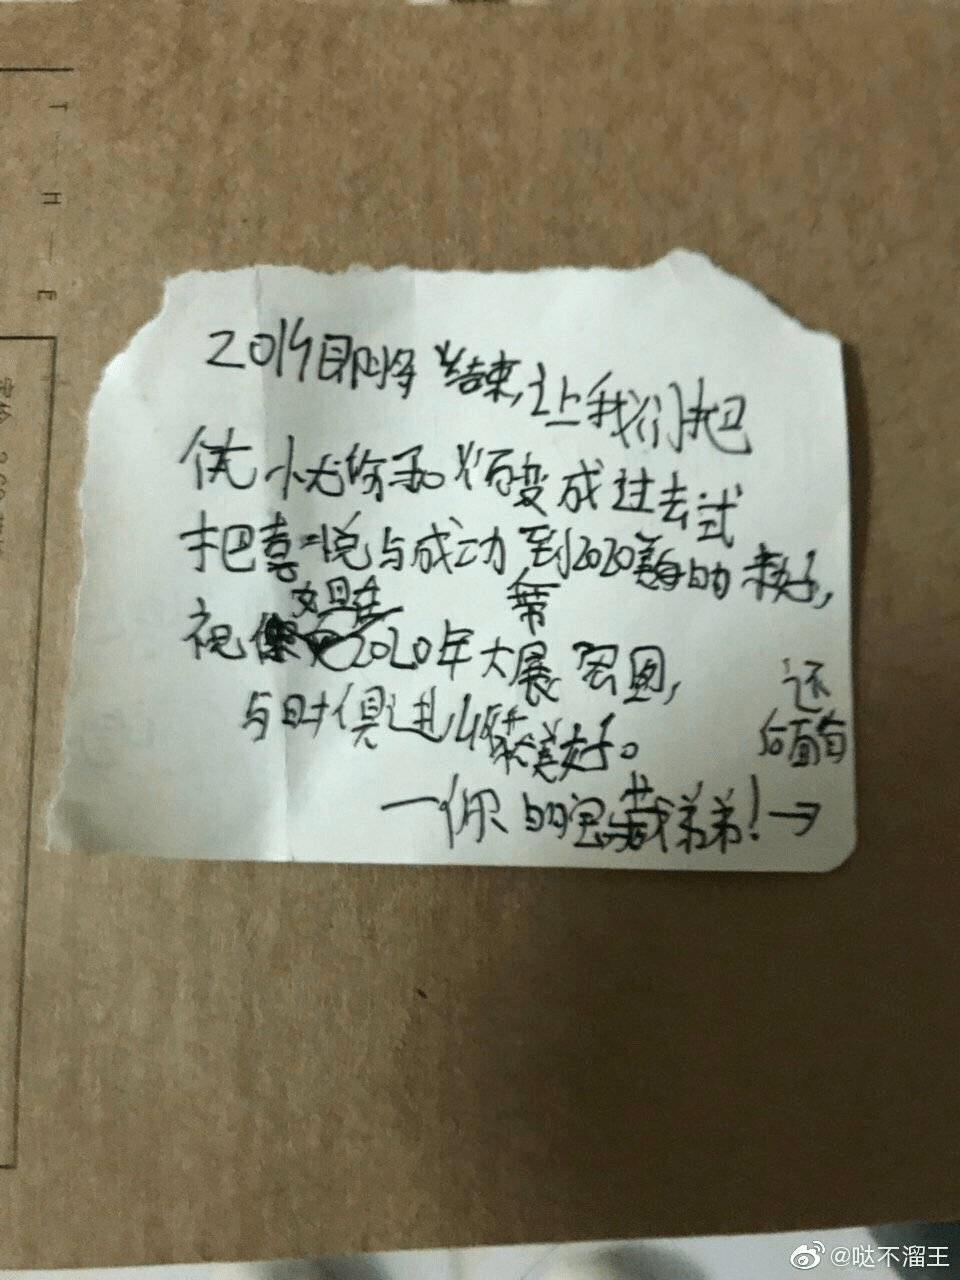 2019即将结束,让我们把
忧心伤和烦变成过去式
把喜悦与成功带到2020美的来好,
祝姐在2020年大展宏图,
与时俱进收获美好。
—你的宝藏弟弟!→
还
后面有
T—H—E
@哒不溜王